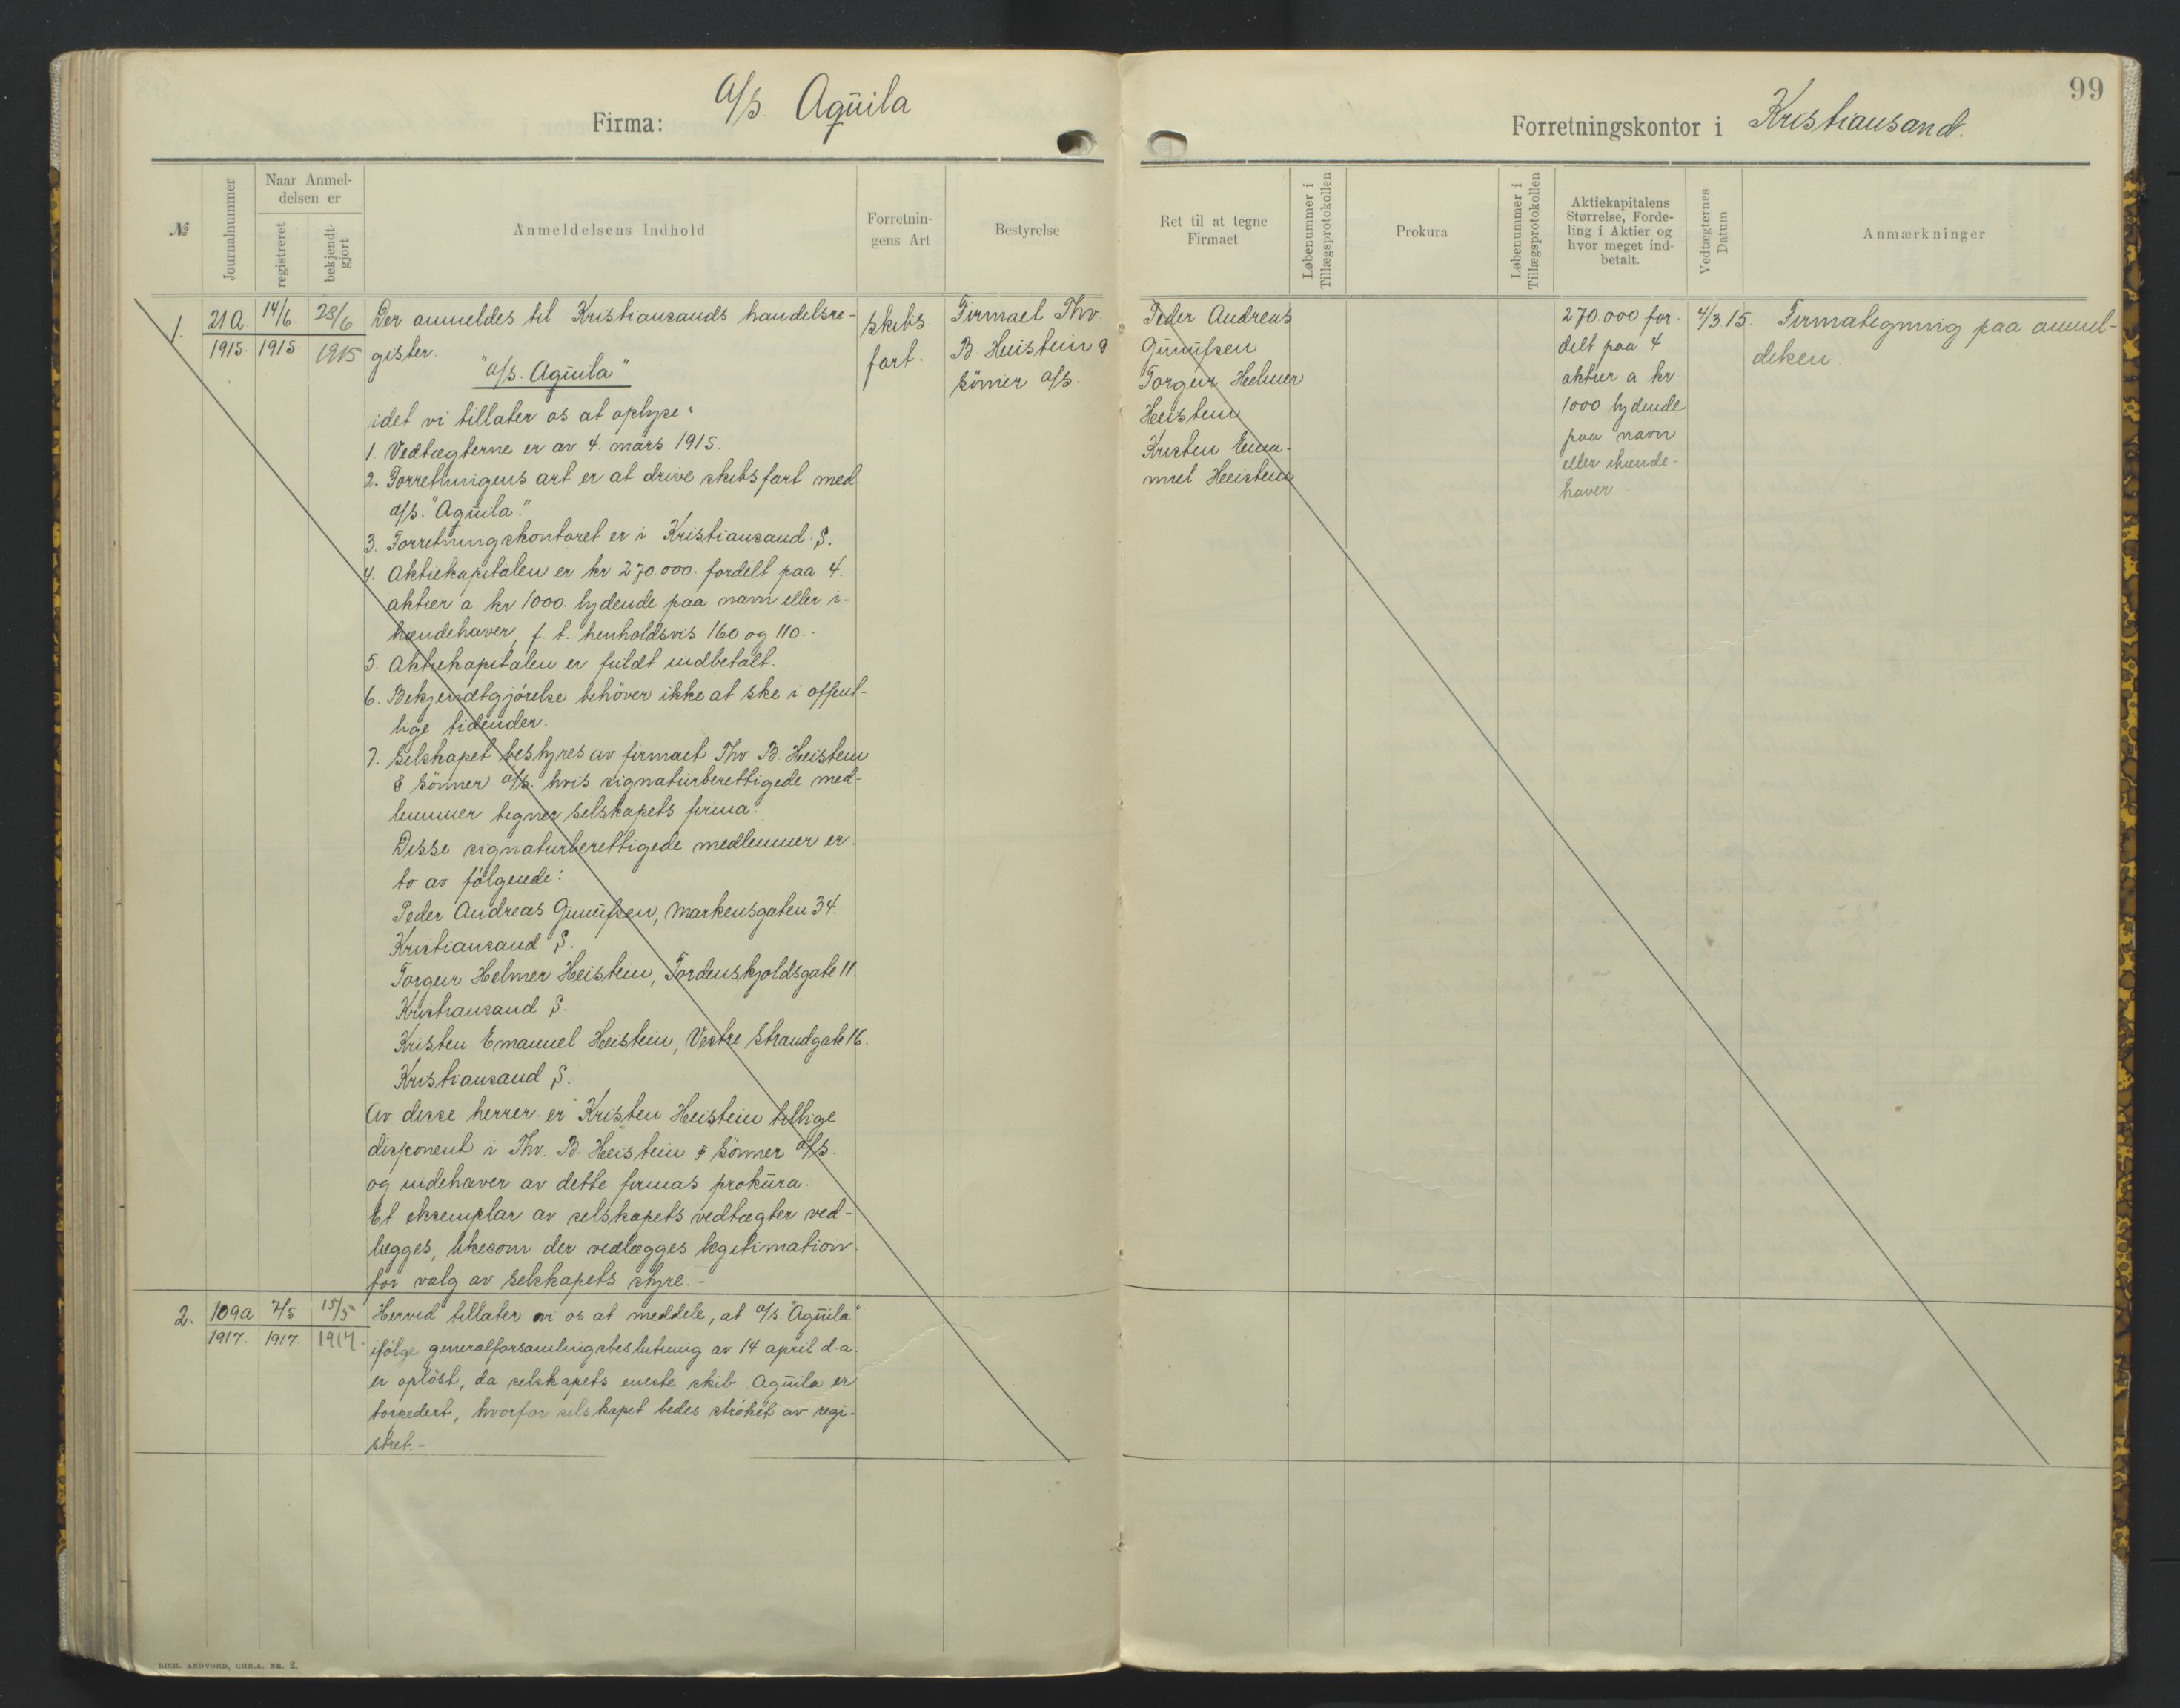 99
Firma: A/s. Aquila
Forretningskontor i Kristiansand.
№
Journalnummer
Naar Anmel-
delsen er
registreret
bekjendt-
gjort
Anmeldelsens Indhold
Forretnin-
gens Art
Bestyrelse
Ret til at tegne
Firmaet
Løbenummer i
Tillægsprotokollen
Prokura
Løbenummer i
Tillægsprotokollen
Aktiekapitalens
Størrelse, Forde-
ling i Aktier og
hvor meget ind-
betalt.
Vedtægternes
Datum
Anmærkninger
1.
21a.
1915
14/6.
1915
28/6
1915
Der anmeldes til Kristiansands handelsre-
gister.
"a/s. Aquila"
idet vi tillater os at oplyse:
1. Vedtægterne er av 4. mars 1915.
2. Forretningens art er at drive skibsfart med
a/s. "Aquila".
3. Forretningskontoret er i Kristiansand S.
4. Aktiekapitalen er kr 270.000. fordelt paa 4.
aktier a kr 1000. lydende paa navn eller i-
hændehaver, f. t. henholdsvis 160 og 110.-
5. Aktiekapitalen er fuldt indbetalt.
6. Bekjendtgjörelse behöver ikke at ske i offent-
lige tidender.
7. Selskapet bestyres av firmaet Thv B. Heistein
& Sönner a/s. hvis signaturberettigede med-
lemmer tegner selskapets firma.
Disse signaturberettigede medlemmer er
to av fölgende:
Peder Andreas Gunufsen, Markensgaten 34.
Kristiansand S.
Torgeir Helmer Heistein, Tordenskjoldsgate 11
Kristiansand S.
Kristen Emanuel Heistein, Vestre Strandgate 16.
Kristiansand S.
Av disse herrer er Kristen Heistein tillige
disponent i Thv. B. Heistein & Sönner a/s.
og indehaver av dette firmas prokura.
Et eksemplar av selskapets vedtægter ved-
lægges, likesom der vedlægges legitimation
for valg av selskapets styre.-
skibs
fart.
Firmaet Thv.
B. Heistein &
Sönner a/s.
Peder Andreas
Gunufsen
Torgeir Helmer
Heistein
Kristen Ema-
nuel Heistein
270.000 for-
delt paa 4
aktier a kr
1000 lydende
paa navn
eller ihænde-
haver.
4/3 15.
Firmategning paa anmel-
delsen.
2.
109a
1917.
7/5
1917.
15/5
1917.
Herved tillater vi os at meddele, at a/s. "Aquila"
ifölge generalforsamlingsbeslutning av 14 april d. a.
er oplöst, da selskapets eneste skib Aquila er
torpedert, hvorfor selskapet bedes ströket av regi-
stret.-
RICH. ANDVORD, CHR.A. NR. 2.